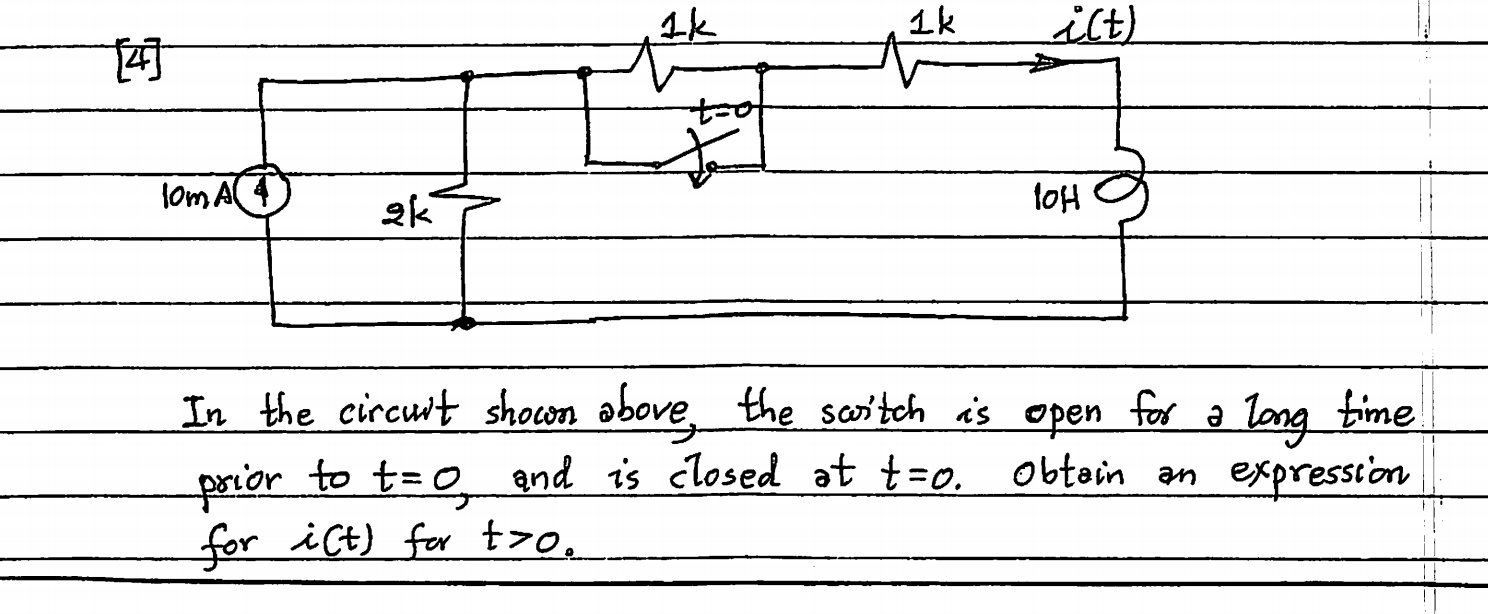 [4]
1k
1k
i(t)
t=0
10mA
2k
10H
In the circuit shown above, the switch is open for a long time
prior to t=0, and is closed at t=0. Obtain an expression
for i(t) for t>0.